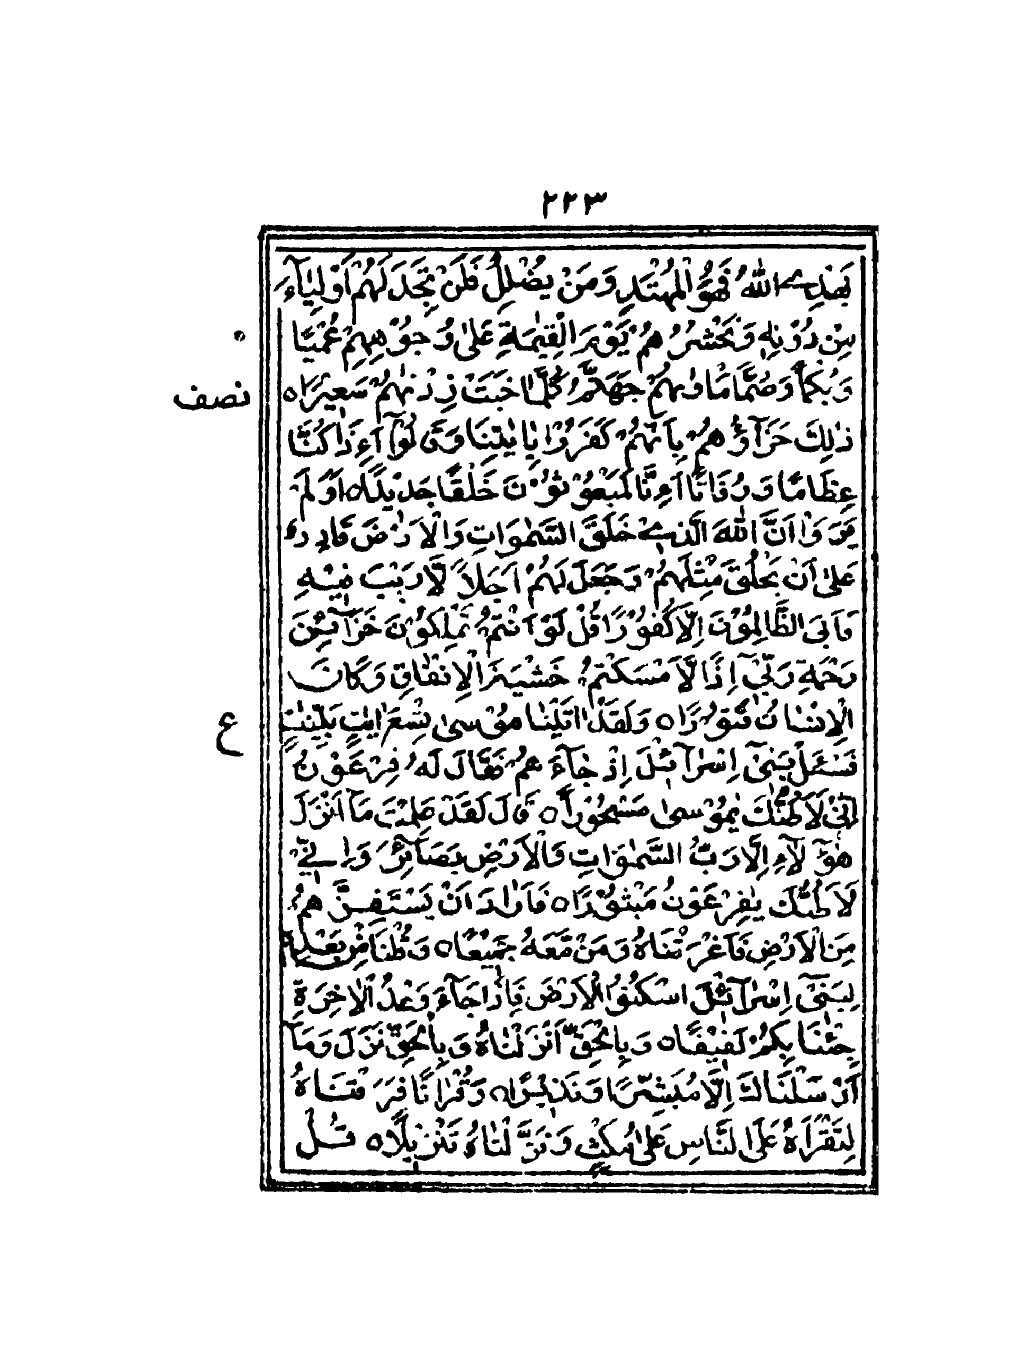 ٢٢٣
يَهْدِے اللهُ فَهُوَ الْمُهْتَدِ وَمَنْ يُضْلِلْ فَلَنْ تَجِدَ لَهُمْ اَوْلِيَآءَ
مِنْ دُوْنِهٖ وَنَحْشُرُهُمْ يَوْمَ الْقِيٰمَةِ عَلٰى وُجُوْهِهِمْ عُمْيًا
وَبُكْمًا وَصُمًّا مَاْوٰىهُمْ جَهَنَّمُ كُلَّمَا خَبَتْ زِدْنٰهُمْ سَعِيْرًا ٥
نصف
ذٰلِكَ جَزَآؤُهُمْ بِاَنَّهُمْ كَفَرُوْا بِاٰيٰتِنَا وَقَالُوْٓا ءَاِذَا كُنَّا
عِظَامًا وَرُفَاتًا ءَاِنَّا لَمَبْعُوْثُوْنَ خَلْقًا جَدِيْدًا ٥ اَوَلَمْ
يَرَوْا اَنَّ اللهَ الَّذِےْ خَلَقَ السَّمٰوَاتِ وَالْاَرْضَ قَادِرٌ
عَلٰى اَنْ يَخْلُقَ مِثْلَهُمْ وَجَعَلَ لَهُمْ اَجَلاً لَّا رَيْبَ فِيْهِ
فَاَبَى الظَّالِمُوْنَ اِلَّا كُفُوْرًا قُلْ لَوْ اَنْتُمْ تَمْلِكُوْنَ خَزَآئِنَ
رَحْمَةِ رَبِّىْٓ اِذًا لَّاَمْسَكْتُمْ خَشْيَةَ الْاِنْفَاقِ وَكَانَ
الْاِنْسَانُ قَتُوْرًا ٥ وَلَقَدْ اٰتَيْنَا مُوْسٰى تِسْعَ اٰيٰتٍ بَيِّنٰتٍ
ع
فَسْـَٔلْ بَنِىْٓ اِسْرَآئِيْلَ اِذْ جَآءَهُمْ فَقَالَ لَهُ فِرْعَوْنُ
اِنِّىْ لَاَظُنُّكَ يٰمُوْسٰى مَسْحُوْرًا ٥ قَالَ لَقَدْ عَلِمْتَ مَآ اَنْزَلَ
هٰٓؤُلَآءِ اِلَّا رَبُّ السَّمٰوَاتِ وَالْاَرْضِ بَصَآئِرَ وَاِنِّےْ
لَاَظُنُّكَ يٰفِرْعَوْنُ مَثْبُوْرًا ٥ فَاَرَادَ اَنْ يَسْتَفِزَّهُمْ
مِنَ الْاَرْضِ فَاَغْرَقْنَاهُ وَمَنْ مَّعَهُ جَمِيْعًا ٥ وَقُلْنَا مِنْ بَعْدِهٖ
لِبَنِىْٓ اِسْرَآئِيْلَ اسْكُنُوا الْاَرْضَ فَاِذَا جَآءَ وَعْدُ الْاٰخِرَةِ
جِئْنَا بِكُمْ لَفِيْفًا ٥ وَبِالْحَقِّ اَنْزَلْنَاهُ وَبِالْحَقِّ نَزَلَ وَمَآ
اَرْسَلْنَاكَ اِلَّا مُبَشِّرًا وَنَذِيْرًا ٥ وَقُرْاٰنًا فَرَقْنَاهُ
لِتَقْرَاَهُ عَلَى النَّاسِ عَلٰى مُكْثٍ وَنَزَّلْنَاهُ تَنْزِيْلًا ٥ قُلْ